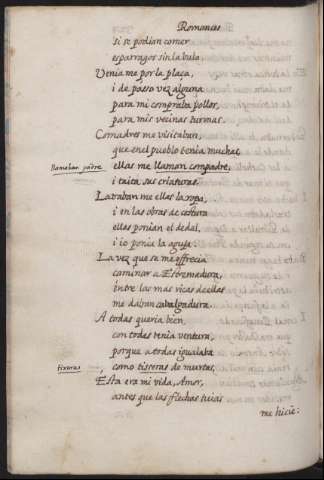 Romances
si se podian comer
esparragos sin la bula.
Venia me por la plaça,
i de passo vez alguna
para mi compraba pollos,
para mis vecinas turmas.
Comadres me visitaban,
que en el pueblo tenia muchas,
llamaban padre
ellas me llaman compadre,
i taita sus criaturas.
Lababan me ellas la ropa,
i en las obras de costura
ellas ponian el dedal,
i io ponia la aguja.
La vez que se me offrecia
caminar a Estremadura,
entre las mas ricas de ellas
me daban cabalgadura.
A todas queria bien,
con todas tenia ventura,
porque a todas igualaba
tixeras
como tiseras de murtas,
Esta era mi vida, Amor,
antes que las flechas tuias
me hicie: